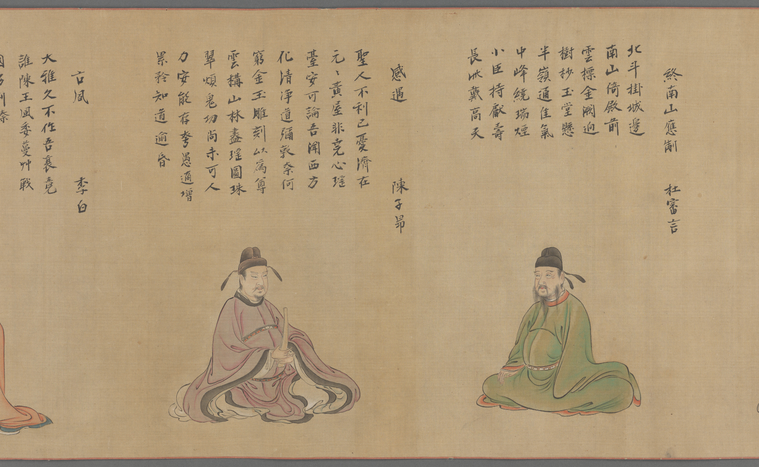 終南山應制
杜審言
北斗掛城邊
南山倚殿前
雲標金闕迥
樹杪玉堂懸
半嶺通佳氣
中峰繞瑞煙
小臣持獻壽
長此戴堯天
感遇
陳子昂
聖人不利己憂濟在
元々黃屋非堯心瑶
臺安可論吾聞西方
化清淨道彌敦奈何
窮金玉雕刻以為尊
雲構山林盡瑶圖珠
翠煩鬼功尚未可人
力安能存夸愚適增
累矜知道逾昏
古風
李白
大雅久不作吾衰竟
誰陳王風委蔓艸戰